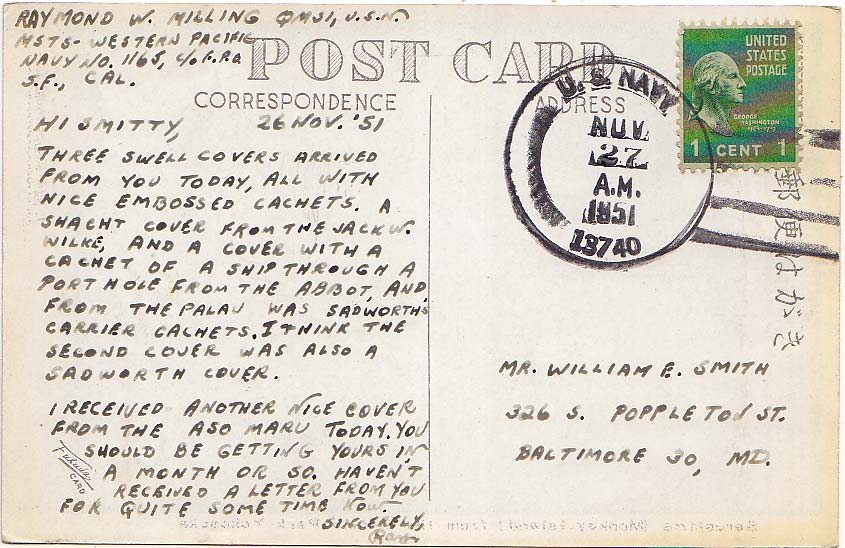 RAYMOND W. MILLING QMS1, U.S.N.
MSTS-WESTERN PACIFIC
NAVY NO. 1165, C/O F.P.O.
S.F., CAL.
POST CARD
CORRESPONDENCE
ADDRESS
HI SMITTY, 26 NOV. '51
THREE SWELL COVERS ARRIVED
FROM YOU TODAY, ALL WITH
NICE EMBOSSED CACHETS. A
SHACHT COVER FROM THE JACK W.
WILKE, AND A COVER WITH A
CACHET OF A SHIP THROUGH A
PORT HOLE FROM THE ABBOT, AND
FROM THE PALAU WAS SADWORTH'S
CARRIER CACHETS. I THINK THE
SECOND COVER WAS ALSO A
SADWORTH COVER.
I RECEIVED ANOTHER NICE COVER
FROM THE ASO MARU TODAY. YOU
SHOULD BE GETTING YOURS IN
A MONTH OR SO. HAVEN'T
RECEIVED A LETTER FROM YOU
FOR QUITE SOME TIME NOW.
SINCERELY,
Ray
Fukuda
CARD
U.S. NAVY
NOV
27
A.M.
1951
13740
UNITED
STATES
POSTAGE
GEORGE
WASHINGTON
1 CENT 1
郵便はがき
MR. WILLIAM E. SMITH
326 S. POPPLETON ST.
BALTIMORE 30, MD.